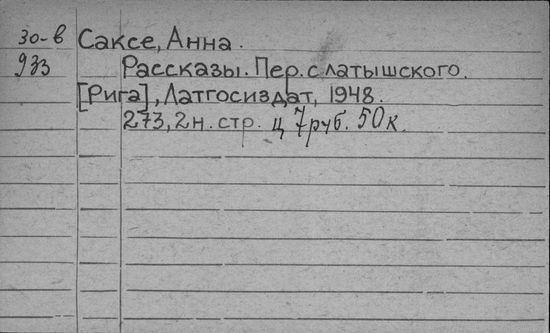 30-в Саксе, Анна.
933 Рассказы. Пер. с латышского.
[Рига], Латгосиздат, 1948.
273, 2 н. стр. ц 7 руб. 50 к.